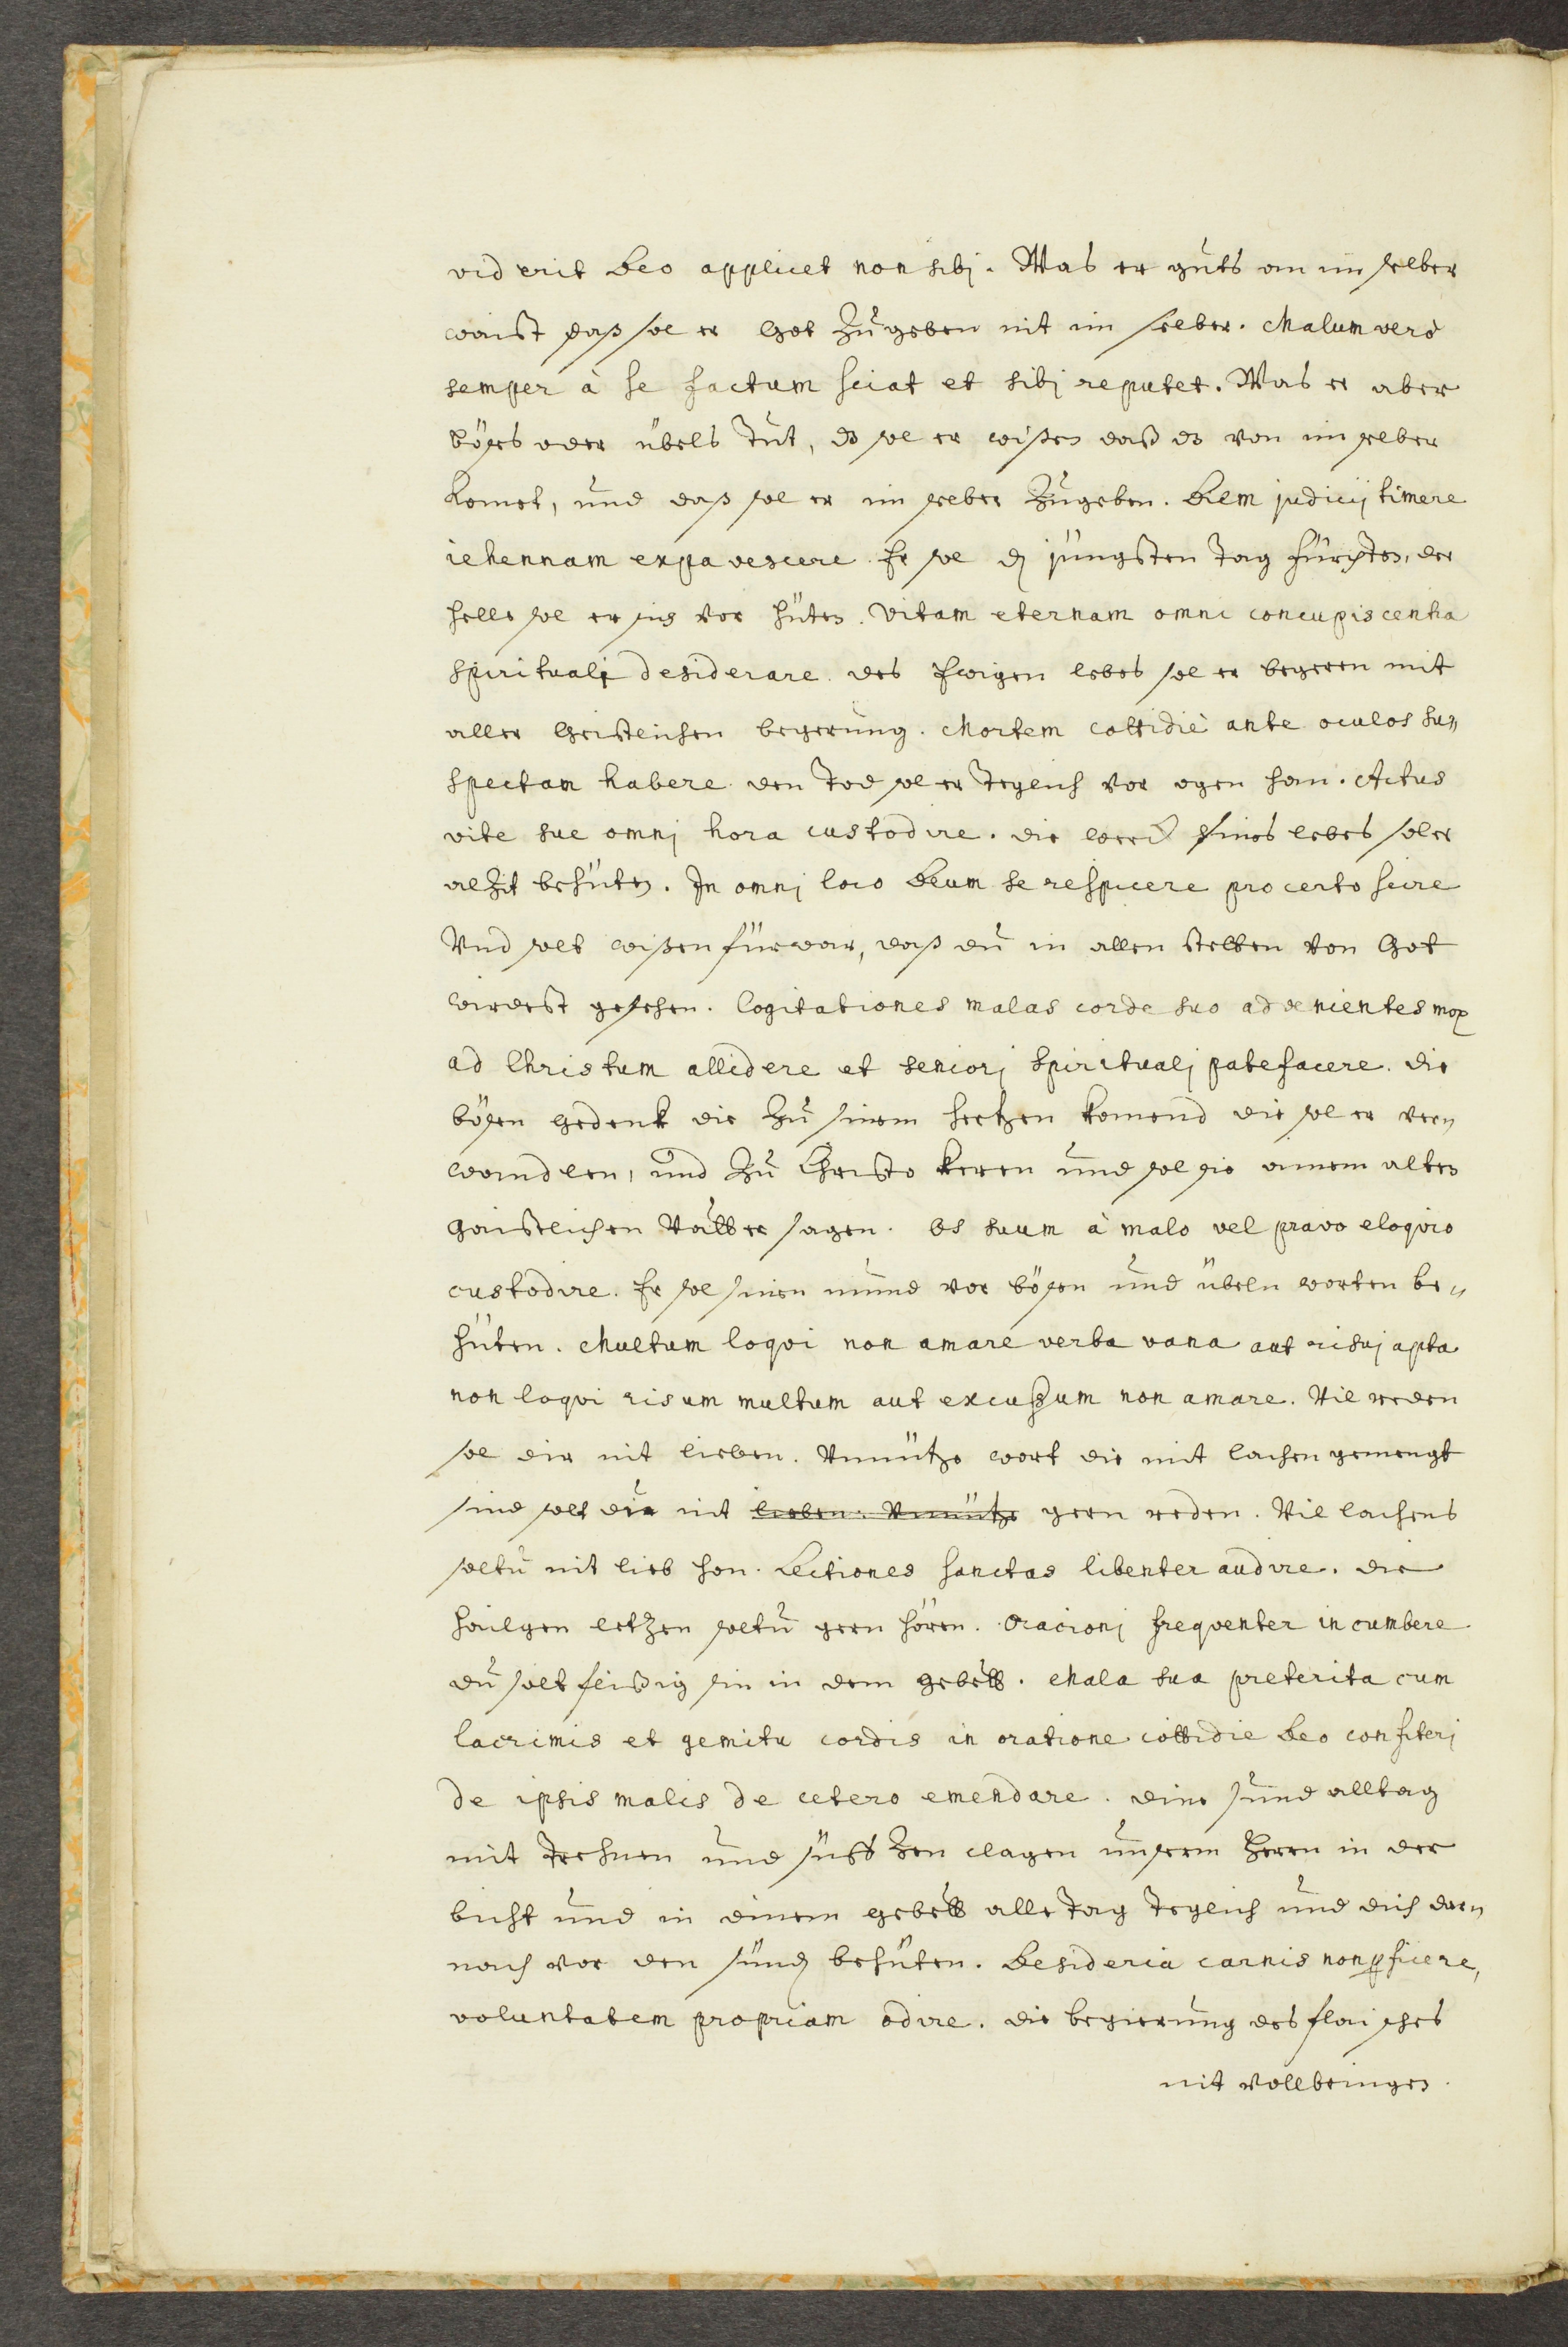 viderit Deo applicet non sibj. Was er guts an im selber
waist daß sol er Got zugeben nit im selber. Malum verò
semper à se factum sciat et sibj reputet. Was er aber
böses oder übels tut, ds sol er wißen daß ds von im selber
komet, und daß sol er im selber zugeben. Diem judicij timere
iehennam expavescere. Er sol dz jüngsten tag fürchten, der
helle sol er sich vor hüten. Vitam eternam omni concupiscentia
spiritualj desiderare. des Ewigen lebes sol er begeren mit
aller Geistlichen begerung. Mortem cottidiè ante oculos su„
spectam habere. den Tod sol er teglich vor ogen han. Actus
vite sue omnj hora custodire. die werck sines lebes sol er
alzit behüten. In omnj loco Deum se respicere pro certo scire
Und solt wißen fürwar, daß du in allen stetten von Got
wirdest gesehen. Cogitationes malas corde suo advenientes mox
ad Christum allidere et seniorj spiritualj patefacere. die
bösen gedenk die zu sinem hertzen komend die sol er ver„
wandlen, und zu Christo keren und sol sie ainem alten
gaistlichen Vatter sagen. Os suum à malo vel pravo eloqvio
custodire. Er sol sinen mund vor bösen und übeln worten be„
hüten. Multum loqvi non amare verba vana aut risuj apta
non loqvi risum multum aut excußum non amare. Vil reden
sol dir nit lieben. Unnütze wort die mit lachen gemengt
sind solt du nit lieben. Unnütze gern reden. Vil lachens
soltu nit lieb han. Lectiones sanctas libenter audire. die
hailgen letzen soltu gern hören. Oracionj freqventer incumbere
du solt fleißig sin in dem gebett. Mala sua preterita cum
lacrimis et gemitu cordis in oratione cottidie Deo confiterj
de ipsis malis de cetero emendare. dine sund alltag
mit Trehnen und süfftzen clagen unserm Herrn in der
bicht und in dinem gebett alle tag teglich und dich dar„
nach vor den sünd behüten. Desideria carnis non pficere,
voluntatem propriam odire. die begierung des flaisches
nit vollbringen.